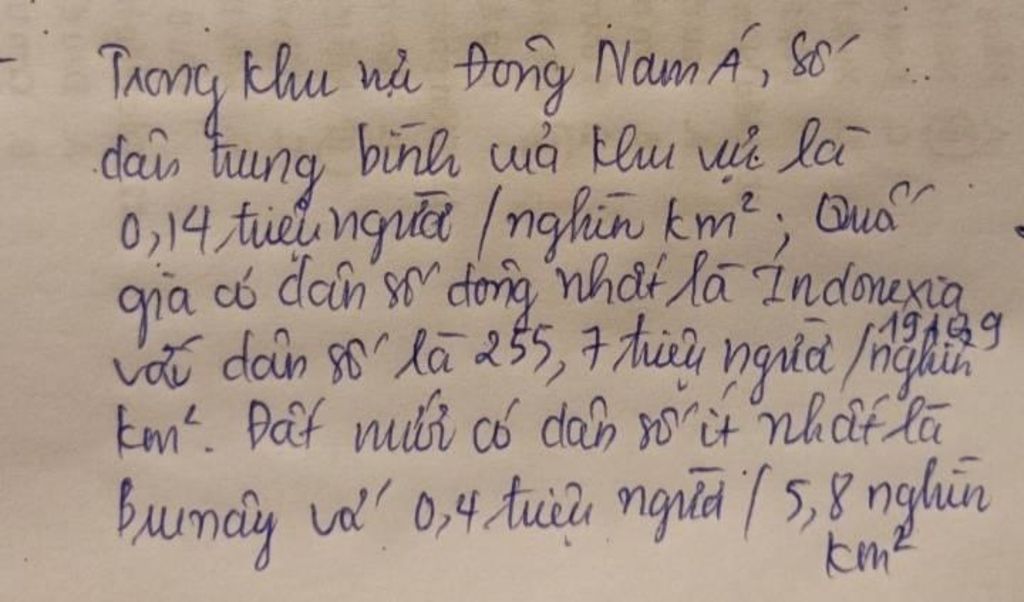 Trong khu vực Đông Nam Á, số
dân trung bình của khu vực là
0,14 triệu người / nghìn km²; Quốc
gia có dân số đông nhất là Indonexia
với dân số là 255,7 triệu người / 1910,9 nghìn
km². Đất nước có dân số ít nhất là
Brunây với 0,4 triệu người / 5,8 nghìn
km²